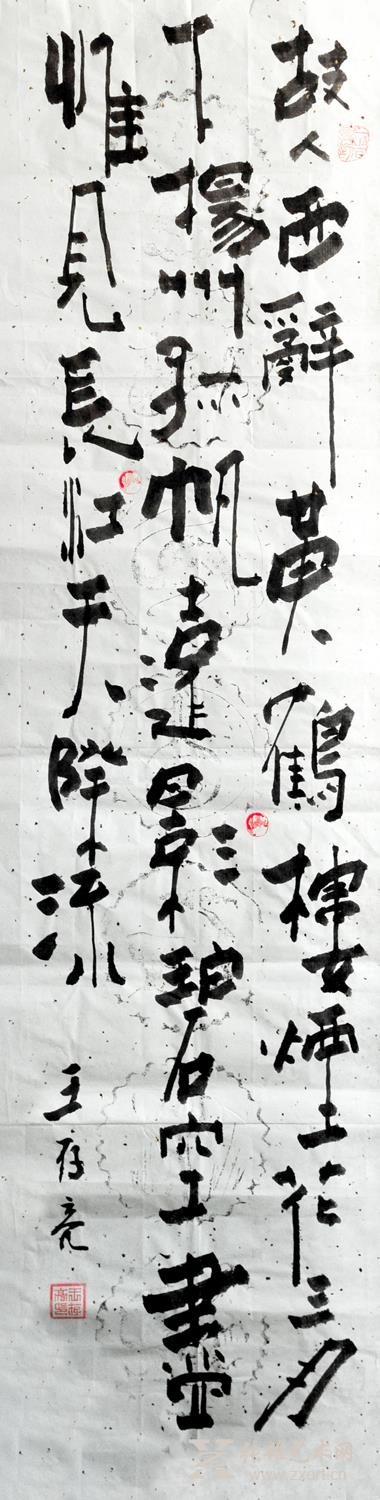 故人西辭黄鶴樓煙花三月
下揚州孤帆遠影碧空盡
惟見長江天際流
王存亮
www.zxart.cn